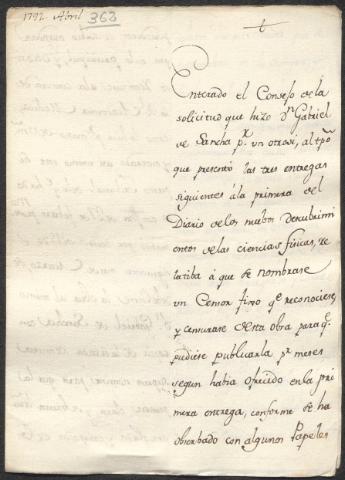 1792. Abril
363
Enterado el Consejo de la
solicitud que hizo Dn Gabriel
de Sancha pr. un otrosi, al tpo
que presentó las tres entregas
siguientes á la primera del
Diario de los nuebos descubrimi
entos de las ciencias fisicas, re
latiba á que se nombrase
un Censor fixo qe reconociese,
y censurase esta obra para q.e
pudiese publicarla pr meses
segun habia ofrecido en la pri
mera entrega, conforme se ha
obserbado con algunos Papeles